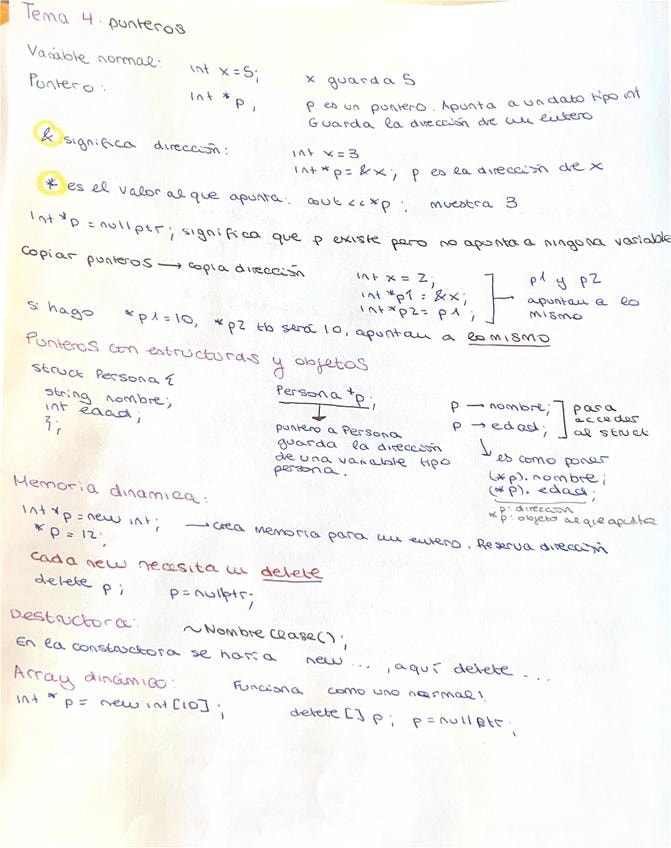 Tema 4: punteros
Variable normal: int x=5; x guarda 5
Puntero: int *p; p es un puntero. Apunta a un dato tipo int
Guarda la dirección de un entero
& significa dirección: int x=3
int*p=&x; p es la dirección de x
* es el valor al que apunta: cout <<*p; muestra 3
int*p=nullptr; significa que p existe pero no apunta a ninguna variable
Copiar punteros → copia dirección
int x=2;
int *p1=&x;
int*p2=p1;
p1 y p2
apuntan a lo
mismo
si hago *p1=10, *p2 tb será 10, apuntan a lo mismo
Punteros con estructuras y objetos
struct Persona {
string nombre;
int edad;
};
Persona *p;
puntero a Persona
guarda la dirección
de una variable tipo
persona.
p → nombre;
p → edad;
para
acceder
al struct
es como poner
(*p). nombre;
(*p). edad;
p: dirección
*p: objeto al que apunta
Memoria dinámica:
int *p=new int; → crea memoria para un entero. Reserva dirección
*p = 12;
cada new necesita un delete
delete p; p=nullptr;
Destructora: ~NombreClase();
En la constructora se haría new ..., aquí delete ...
Array dinámico: Funciona como uno normal!
int *p= new int[10]; delete[] p; p=nullptr;